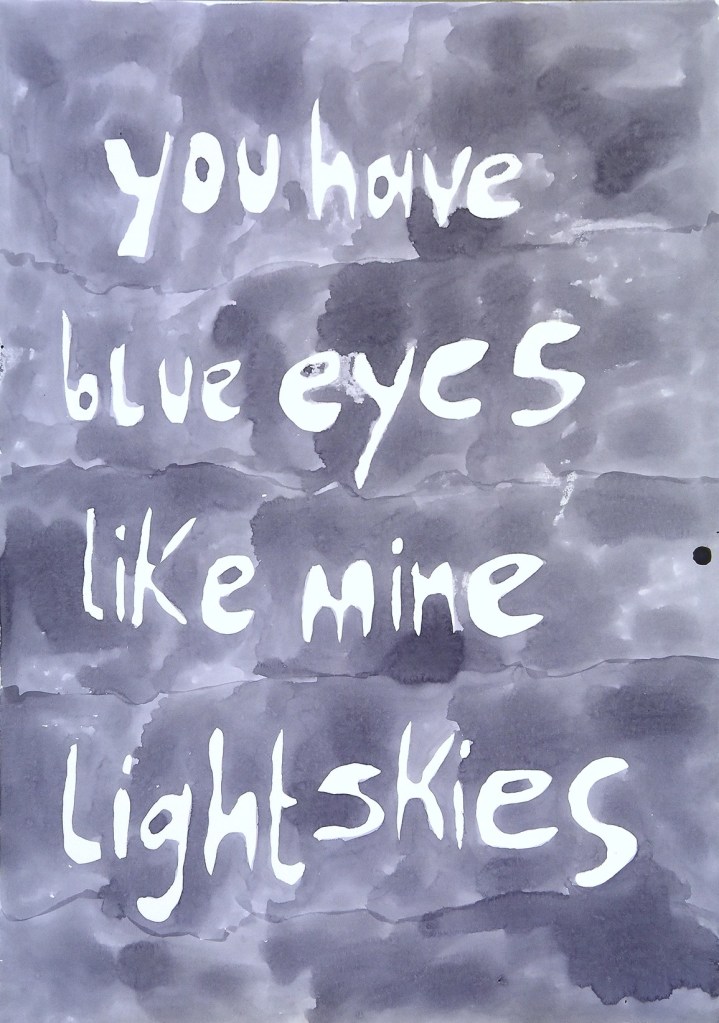 you have
blue eyes
like mine
light skies